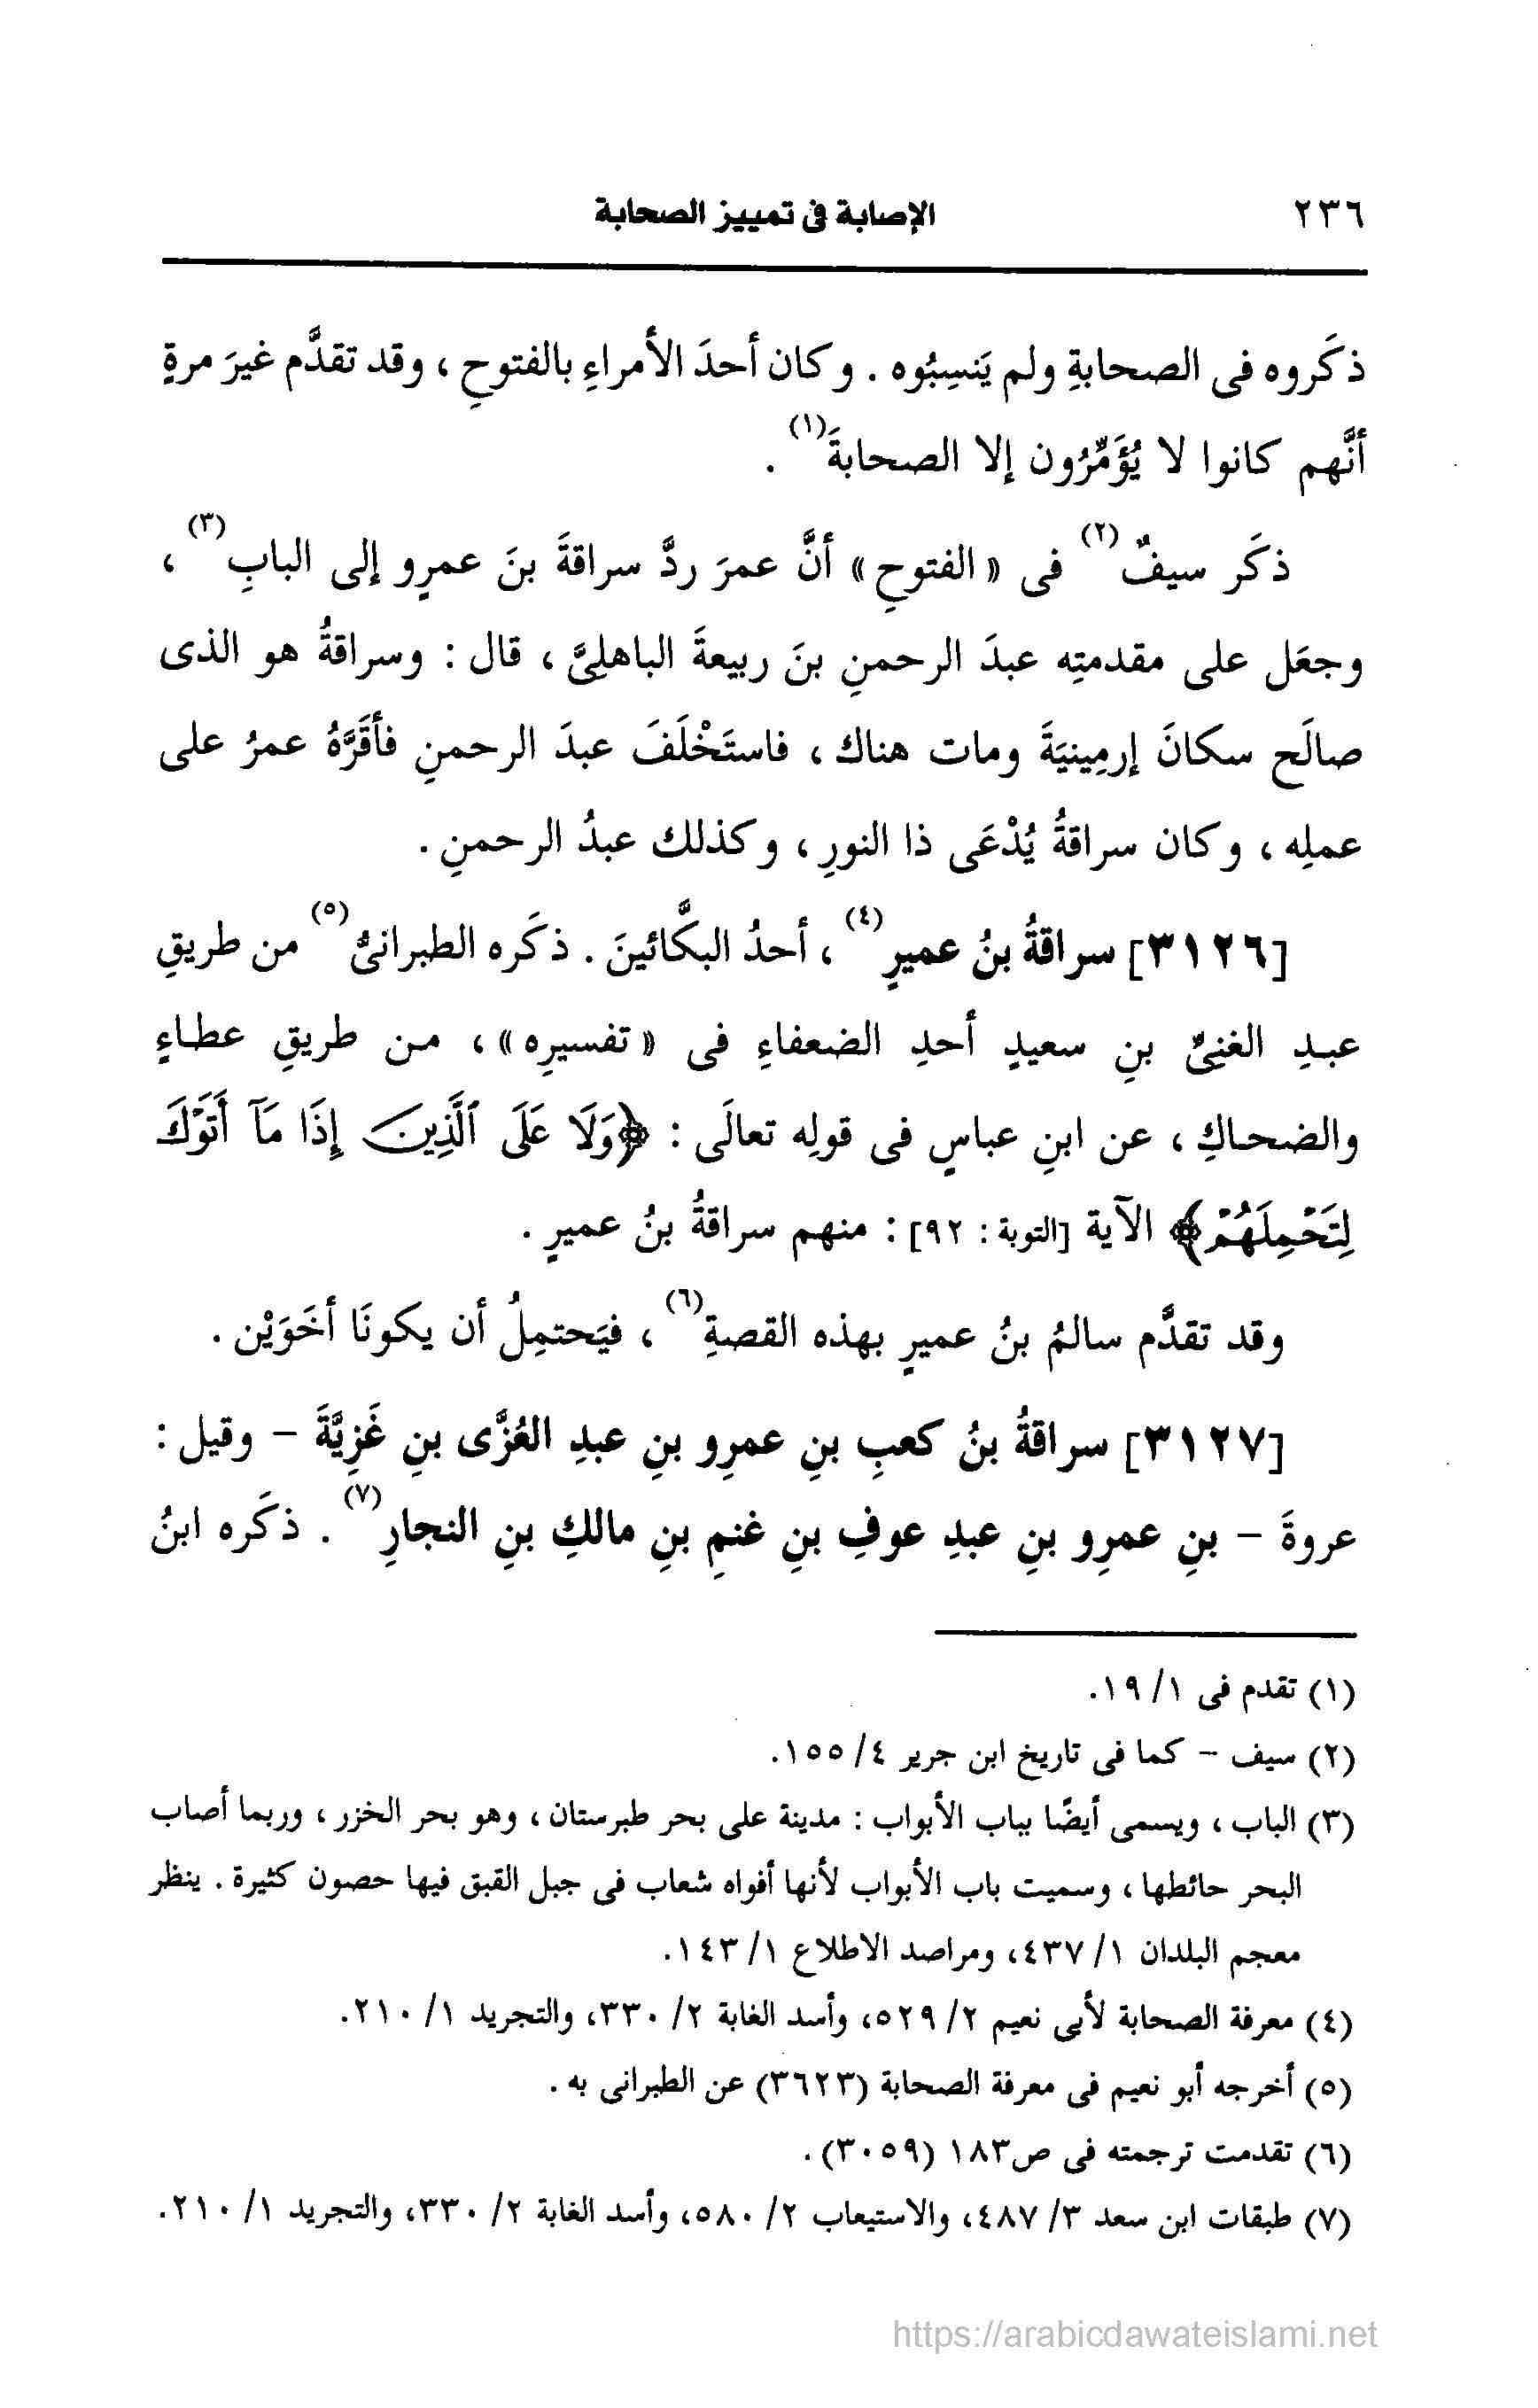 ٢٣٦ الإصابة فى تمييز الصحابة
ذكَروه فى الصحابةِ ولم يَنسِبُوه . وكان أحدَ الأمراءِ بالفتوحِ ، وقد تقدَّم غيرَ مرةٍ
أنَّهم كانوا لا يُؤَمِّرُون إلا الصحابةَ(١) .
ذكَر سيفٌ(٢) فى « الفتوحِ » أنَّ عمرَ ردَّ سراقةَ بنَ عمرٍو إلى البابِ(٣) ،
وجعَل على مقدمتِه عبدَ الرحمنِ بنَ ربيعةَ الباهلِىَّ ، قال : وسراقةُ هو الذى
صالَح سكانَ إرمِينيَةَ ومات هناك ، فاستَخْلَفَ عبدَ الرحمنِ فأقَرَّهُ عمرُ على
عملِه ، وكان سراقةُ يُدْعَى ذا النورِ ، وكذلك عبدُ الرحمنِ .
[٣١٢٦] سراقةُ بنُ عميرٍ(٤) ، أحدُ البكَّائينَ . ذكَره الطبرانىُّ(٥) من طريقِ
عبدِ الغنِىِّ بنِ سعيدٍ أحدِ الضعفاءِ فى « تفسيرِه » ، من طريقِ عطاءٍ
والضحاكِ ، عن ابنِ عباسٍ فى قولِه تعالَى : ﴿وَلَا عَلَى ٱلَّذِينَ إِذَا مَآ أَتَوْكَ
لِتَحْمِلَهُمْ﴾ الآية [التوبة : ٩٢] : منهم سراقةُ بنُ عميرٍ .
وقد تقدَّم سالمُ بنُ عميرٍ بهذه القصةِ(٦) ، فيَحتمِلُ أن يكونَا أخَوَيْن .
[٣١٢٧] سراقةُ بنُ كعبِ بنِ عمرِو بنِ عبدِ العُزَّى بنِ غَزِيَّةَ – وقيل :
عروةَ – بنِ عمرِو بنِ عبدِ عوفِ بنِ غنمِ بنِ مالكِ بنِ النجارِ(٧) . ذكَره ابنُ
(١) تقدم فى ١/ ١٩.
(٢) سيف – كما فى تاريخ ابن جرير ٤/ ١٥٥.
(٣) الباب ، ويسمى أيضًا بباب الأبواب : مدينة على بحر طبرستان ، وهو بحر الخزر ، وربما أصاب
البحر حائطها ، وسميت باب الأبواب لأنها أفواه شعاب فى جبل القبق فيها حصون كثيرة . ينظر
معجم البلدان ١/ ٤٣٧، ومراصد الاطلاع ١/ ١٤٣.
(٤) معرفة الصحابة لأبى نعيم ٢/ ٥٢٩، وأسد الغابة ٢/ ٣٣٠، والتجريد ١/ ٢١٠.
(٥) أخرجه أبو نعيم فى معرفة الصحابة (٣٦٢٣) عن الطبرانى به .
(٦) تقدمت ترجمته فى ص١٨٣ (٣٠٥٩) .
(٧) طبقات ابن سعد ٣/ ٤٨٧، والاستيعاب ٢/ ٥٨٠، وأسد الغابة ٢/ ٣٣٠، والتجريد ١/ ٢١٠.
https://arabicdawateislami.net